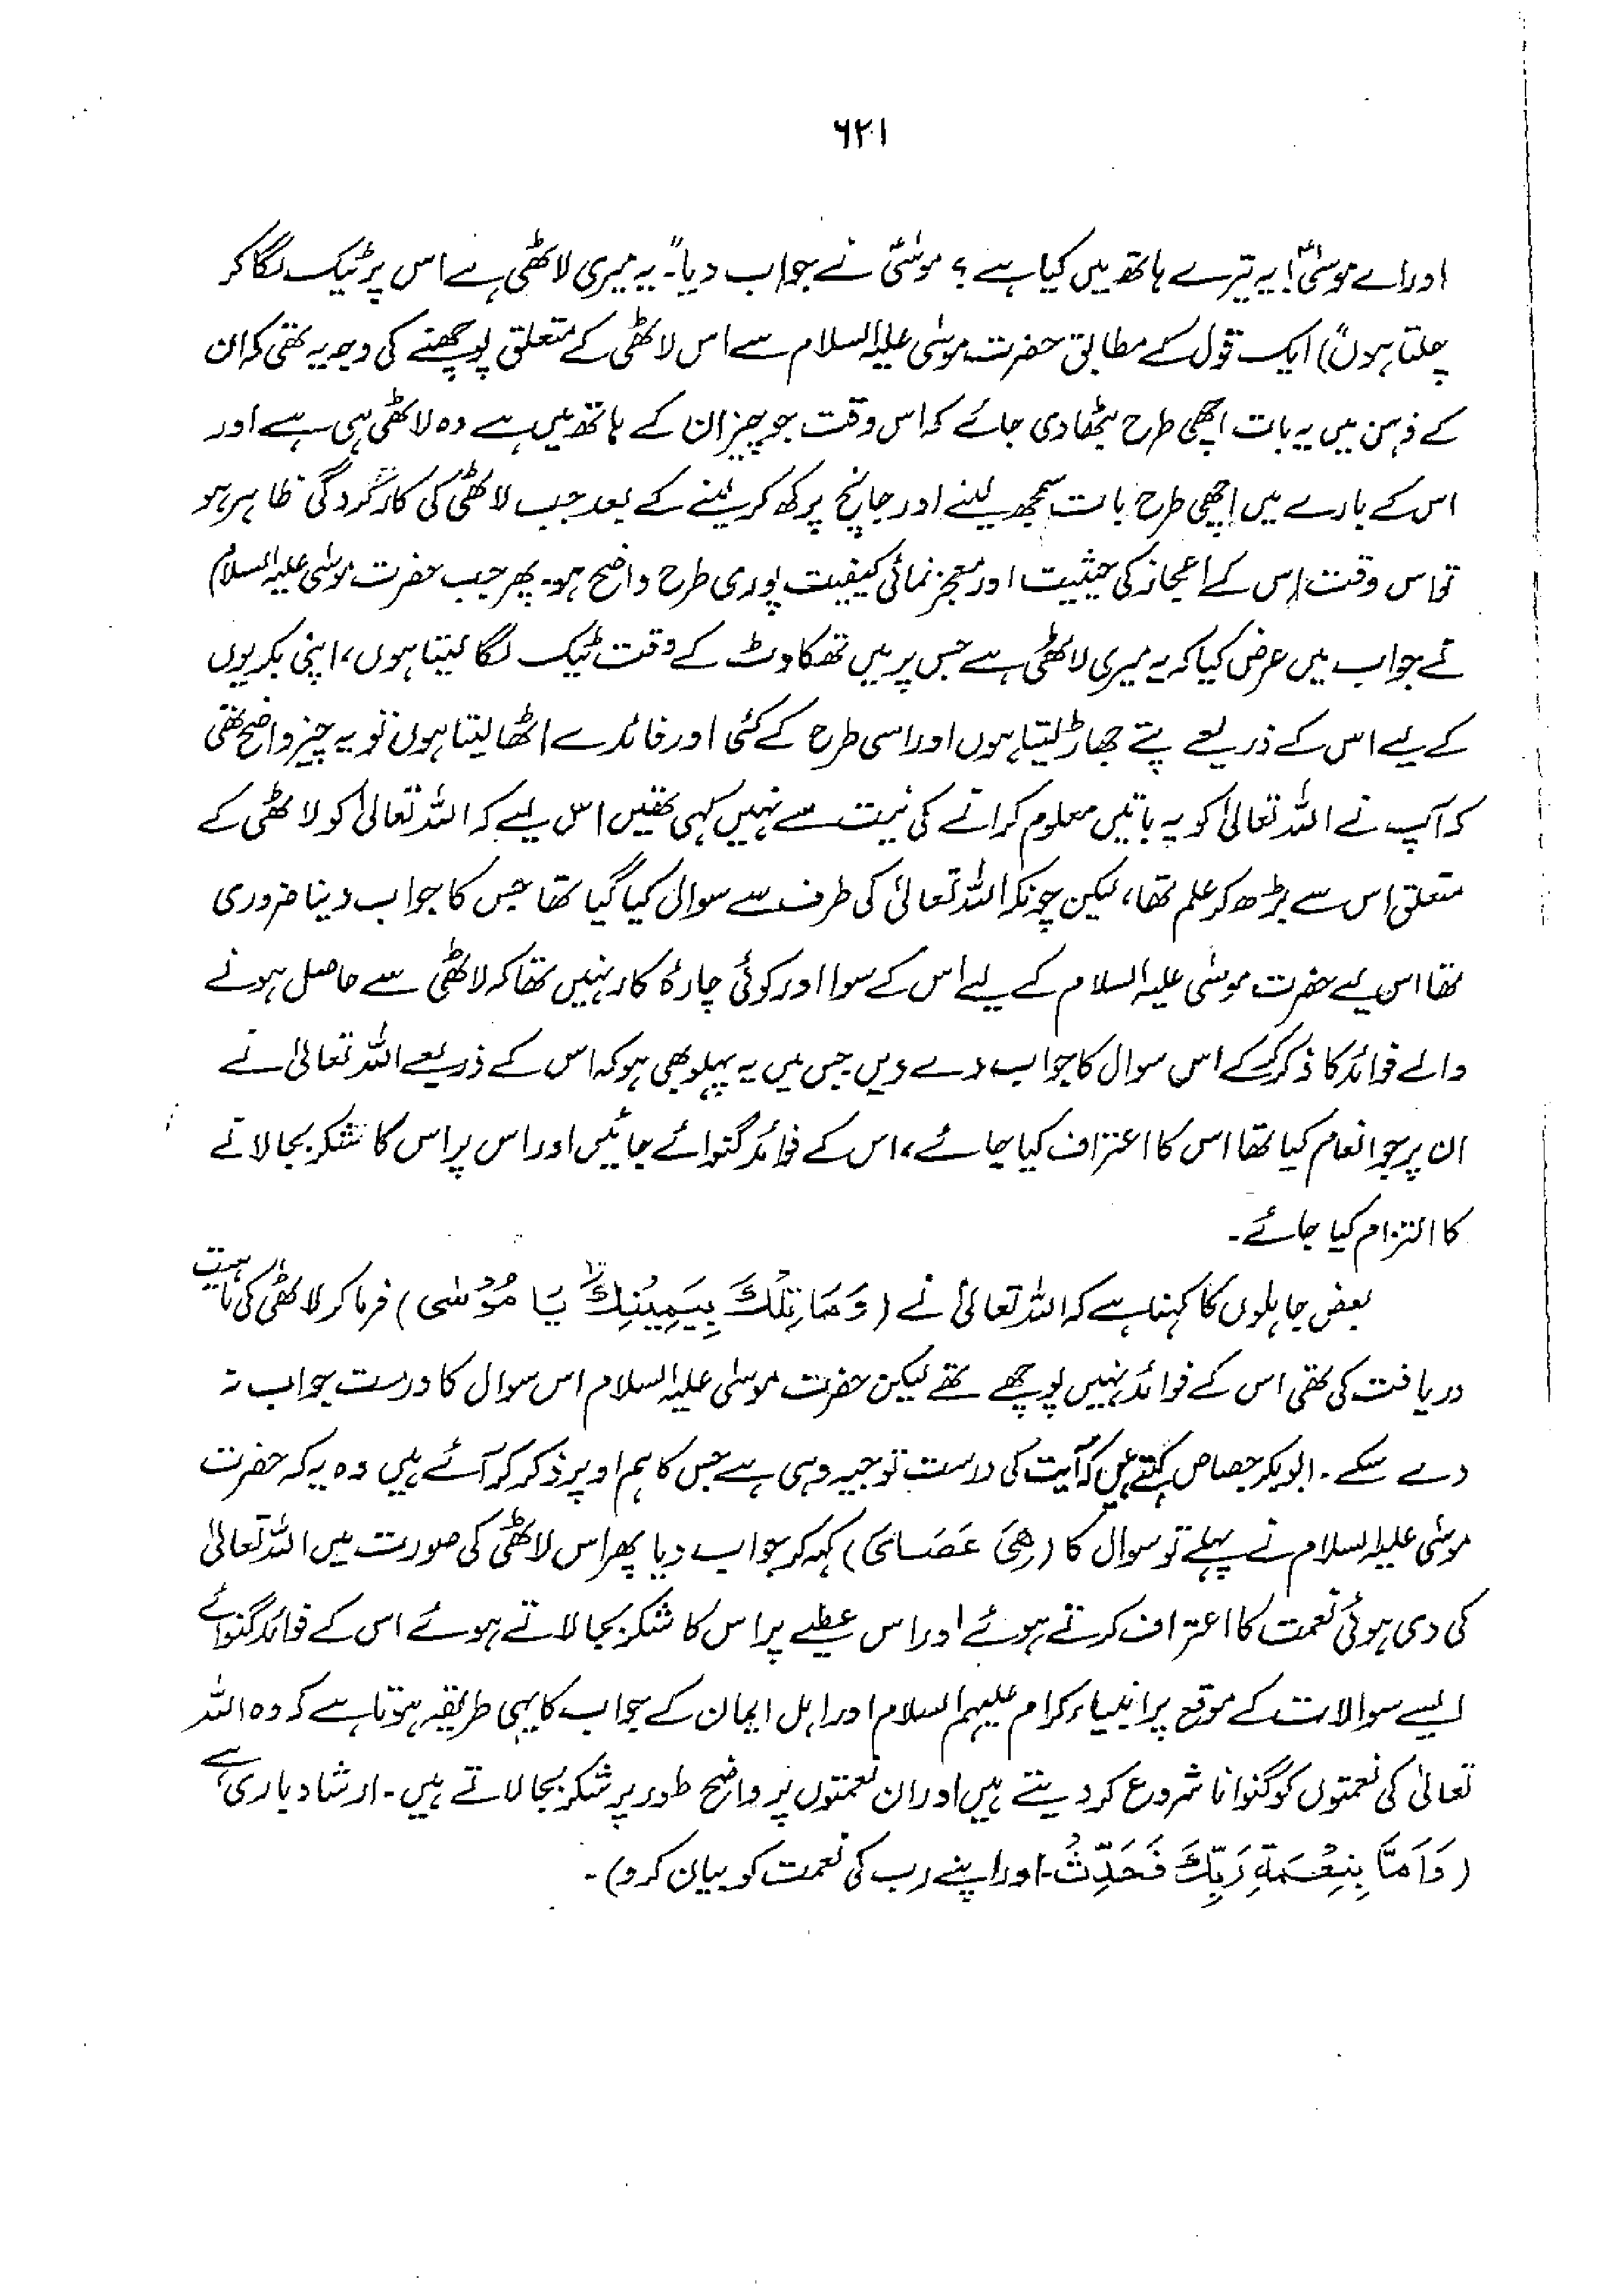 ۶۲۱
اور اے موسیٰؑ! یہ تیرے ہاتھ میں کیا ہے؟ موسیٰؑ نے جواب دیا"۔ یہ میری لاٹھی ہے اس پر ٹیک لگا کر
چلتا ہوں") ایک قول کے مطابق حضرت موسیٰ علیہ السلام سے اس لاٹھی کے متعلق پوچھنے کی وجہ یہ تھی کہ ان
کے ذہن میں یہ بات اچھی طرح بٹھا دی جائے کہ اس وقت جو چیز ان کے ہاتھ میں ہے وہ لاٹھی ہی ہے اور
اس کے بارے میں اچھی طرح بات سمجھ لینے اور جانچ پرکھ کر لینے کے بعد جب لاٹھی کی کارکردگی ظاہر ہو
تو اس وقت اس کے اعجاز کی حیثیت اور معجز نمائی کیفیت پوری طرح واضح ہو۔ پھر جب حضرت موسیٰ علیہ السلام
نے جواب میں عرض کیا کہ یہ میری لاٹھی ہے جس پر میں تھکاوٹ کے وقت ٹیک لگا لیتا ہوں، اپنی بکریوں
کے لیے اس کے ذریعے پتے جھاڑ لیتا ہوں اور اسی طرح کے کئی اور فائدے اٹھا لیتا ہوں تو یہ چیز واضح تھی
کہ آپ نے اللہ تعالیٰ کو یہ باتیں معلوم کرانے کی نیت سے نہیں کہی تھیں اس لیے کہ اللہ تعالیٰ کو لاٹھی کے
متعلق اس سے بڑھ کر علم تھا، لیکن چونکہ اللہ تعالیٰ کی طرف سے سوال کیا گیا تھا جس کا جواب دینا ضروری
تھا اس لیے حضرت موسیٰ علیہ السلام کے لیے اس کے سوا اور کوئی چارۂ کار نہیں تھا کہ لاٹھی سے حاصل ہونے
والے فوائد کا ذکر کرکے اس سوال کا جواب دے دیں جس میں یہ پہلو بھی ہو کہ اس کے ذریعے اللہ تعالیٰ نے
ان پر جو انعام کیا تھا اس کا اعتراف کیا جائے، اس کے فوائد گنوائے جائیں اور اس پر اس کا شکر بجا لانے
کا التزام کیا جائے۔
بعض جاہلوں کا کہنا ہے کہ اللہ تعالیٰ نے (وَمَا تِلْكَ بِيَمِينِكَ يَا مُوْسٰى) فرما کر لاٹھی کی ماہیت
دریافت کی تھی اس کے فوائد نہیں پوچھے تھے لیکن حضرت موسیٰ علیہ السلام اس سوال کا درست جواب نہ
دے سکے۔ ابوبکر جصاص کہتے ہیں کہ آیت کی درست توجیہ وہی ہے جس کا ہم اوپر ذکر کر آئے ہیں وہ یہ کہ حضرت
موسیٰ علیہ السلام نے پہلے تو سوال کا (هِيَ عَصَايَ) کہہ کر جواب دیا پھر اس لاٹھی کی صورت میں اللہ تعالیٰ
کی دی ہوئی نعمت کا اعتراف کرتے ہوئے اور اس عطیے پر اس کا شکر بجا لاتے ہوئے اس کے فوائد گنوائے
ایسے سوالات کے موقع پر انبیاء کرام علیہم السلام اور اہل ایمان کے جواب کا یہی طریقہ ہوتا ہے کہ وہ اللہ
تعالیٰ کی نعمتوں کو گنوانا شروع کر دیتے ہیں اور ان نعمتوں پر واضح طور پر شکر بجا لاتے ہیں۔ ارشاد باری ہے
(وَاَمَّا بِنِعْمَةِ رَبِّكَ فَحَدِّثْ۔ اور اپنے رب کی نعمت کو بیان کرو)۔